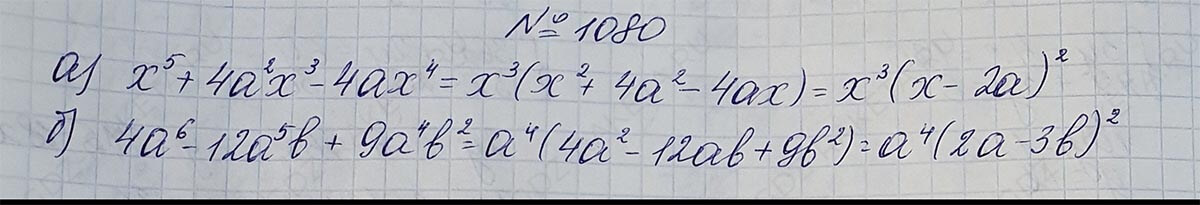 № 1080
а) x⁵ + 4a²x³ - 4ax⁴ = x³(x² + 4a² - 4ax) = x³(x - 2a)²
б) 4a⁶ - 12a⁵b + 9a⁴b² = a⁴(4a² - 12ab + 9b²) = a⁴(2a - 3b)²